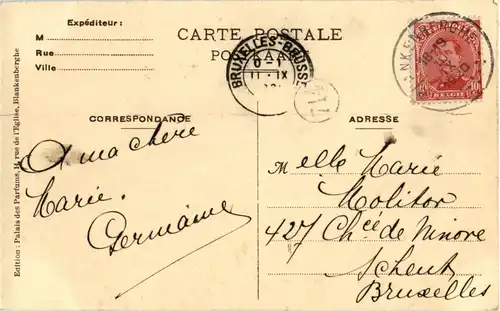 Expéditeur:
M
Rue
Ville
CARTE POSTALE
POSTKAART
BRUXELLES-BRUSSEL
11 · IX
BLANKENBERGHE
18-19
BELGIE
10
10
CORRESPONDANCE
ADRESSE
A ma chère
Marie.
Germaine
Melle Marie
Molitor
427 Chée de Ninove
Scheut
Bruxelles
Edition: Palais des Parfums, 14, rue de l'Eglise, Blankenberghe